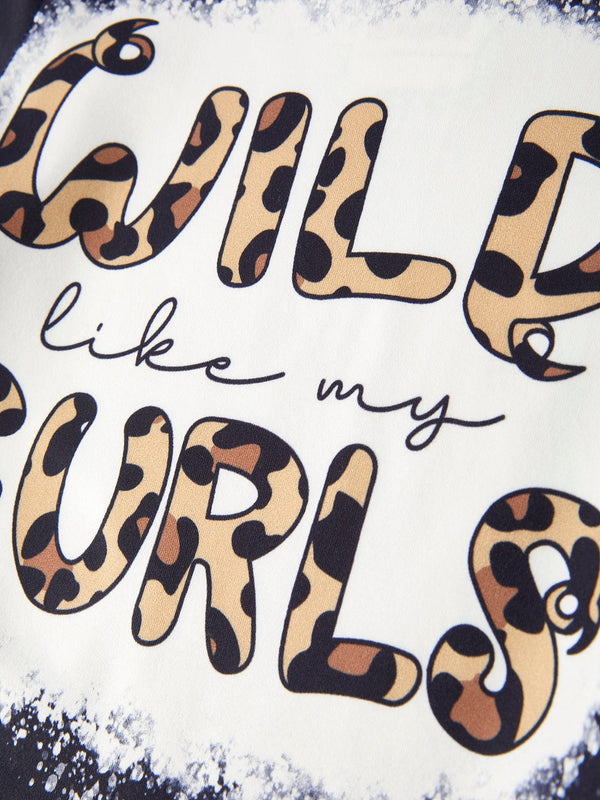 WILD
like my
CURLS